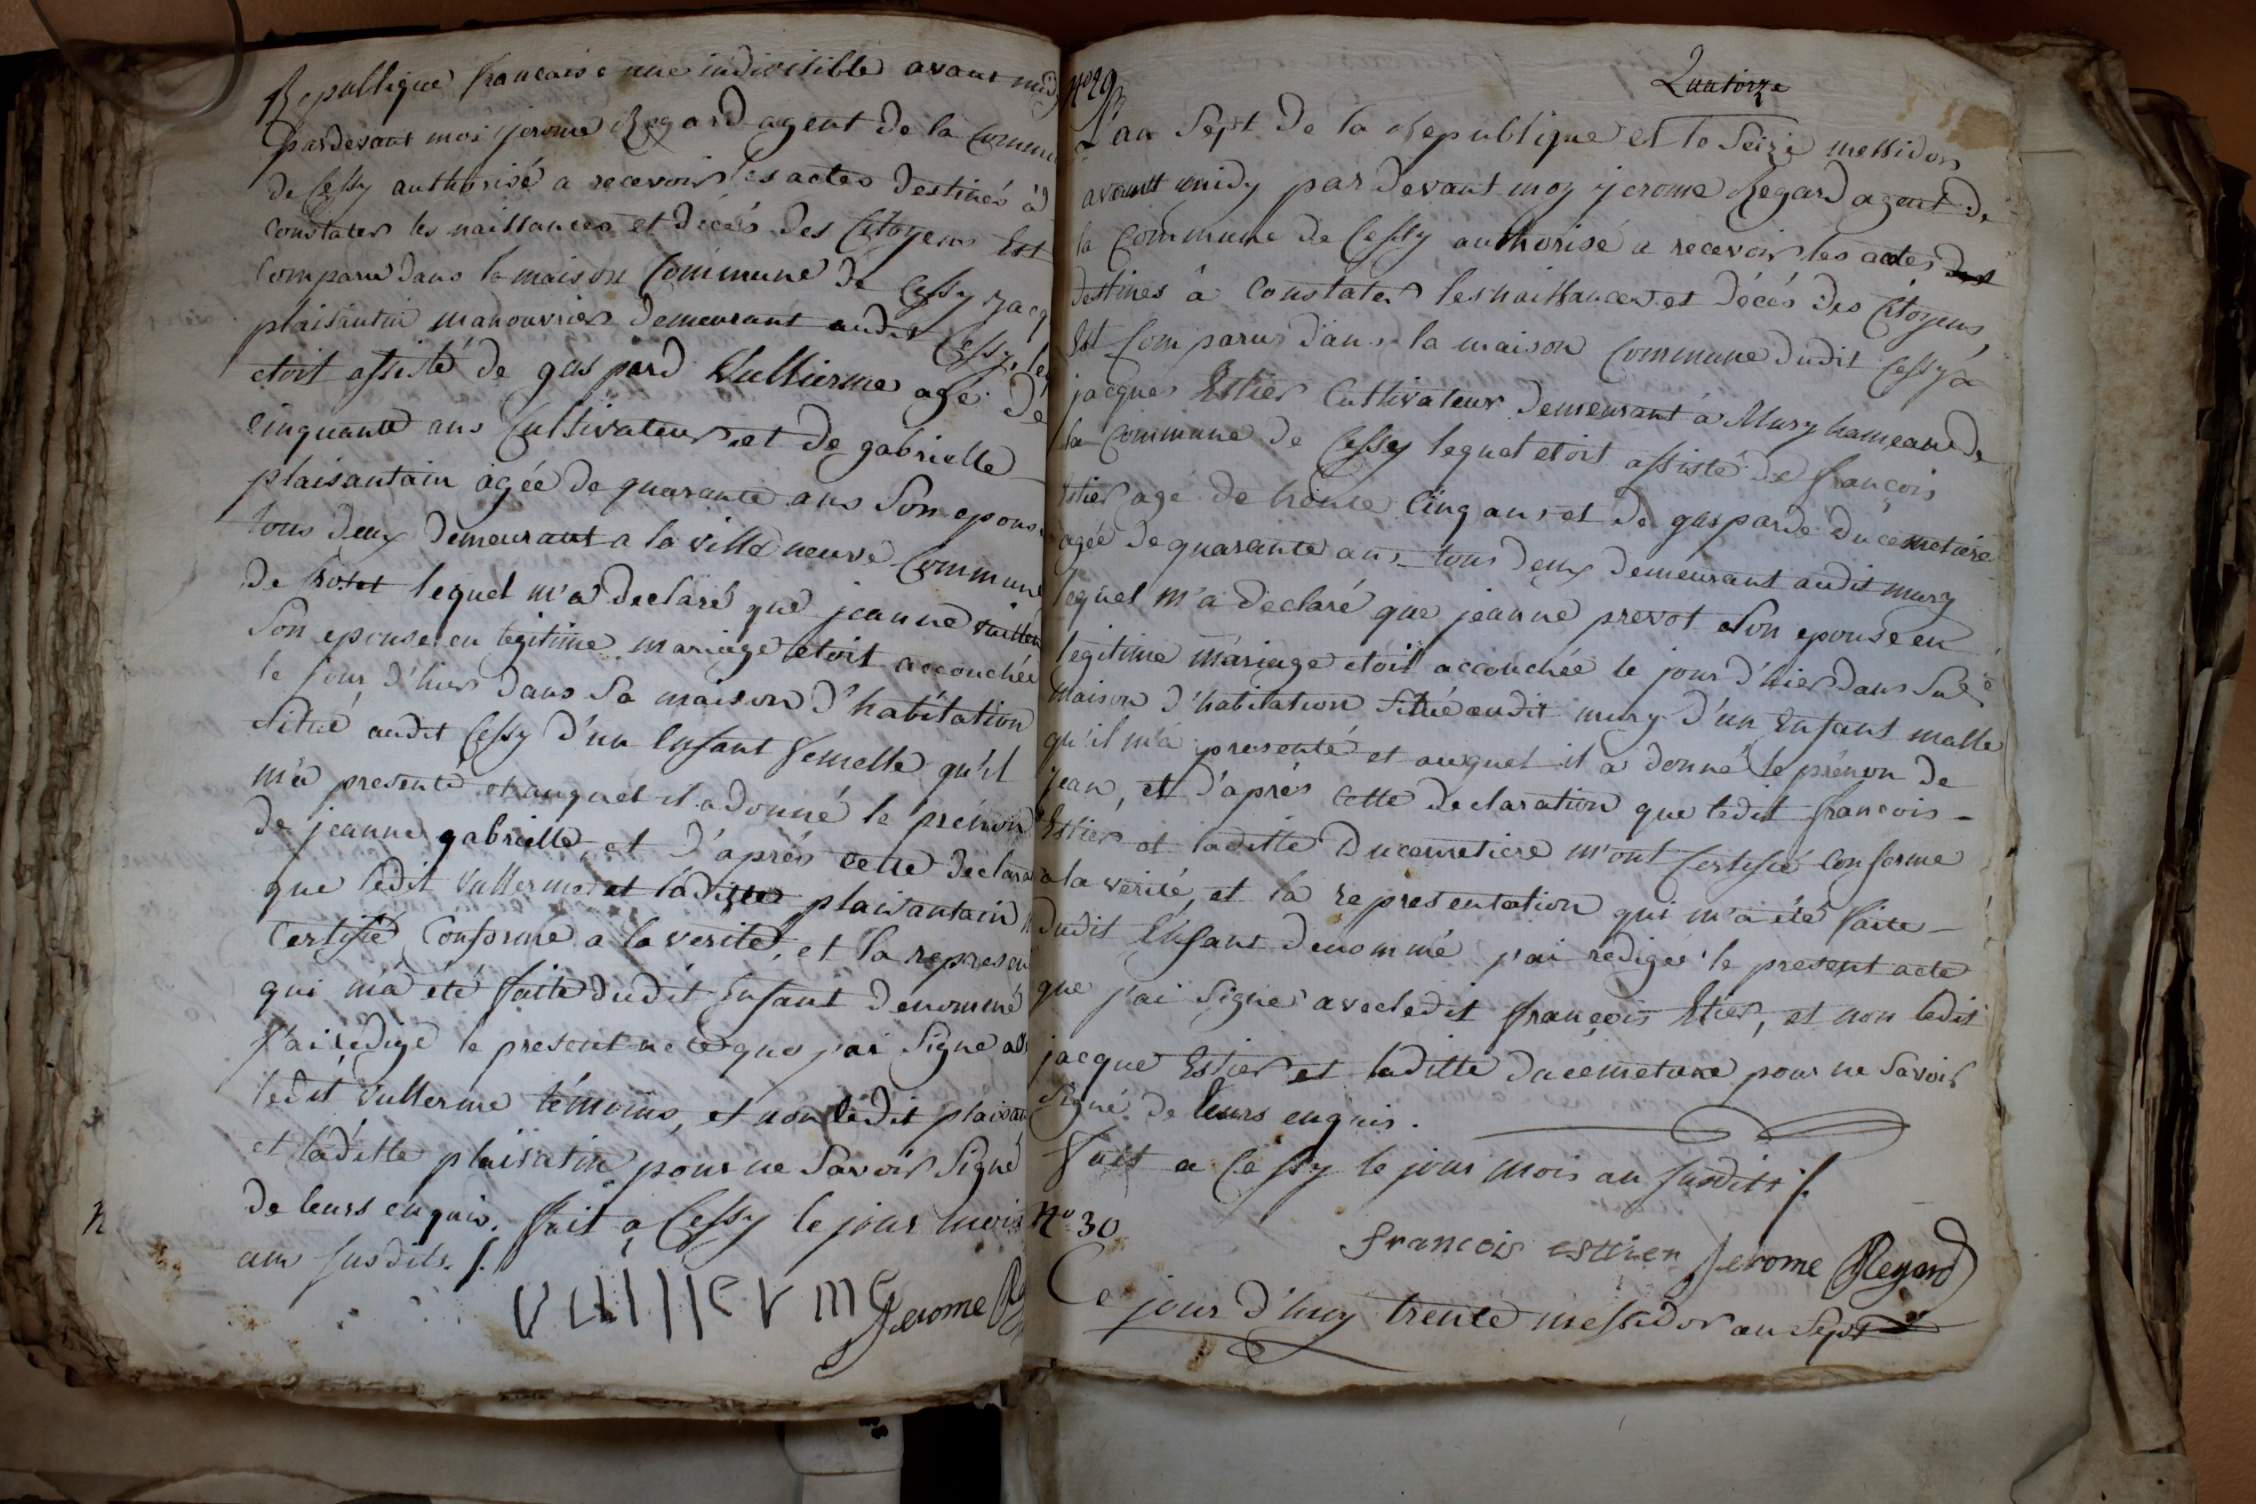 Republique francaise une indivisible avant midy
pardevant moi jerome Regard agent de la Commu
de Cessy authorisé a recevoir les actes destinés à
Constater les naissances et décés des Citoyens Est
Comparu dans la maison Commune de Cessy Jacq
plaisantin manouvrier demeurant audit Cessy, leq
etoit assisté de gaspard Vullierme agé de
Cinquante ans Cultivateur et de gabrielle
plaisantain agée de quarante ans Son epouse
tous deux demeurant a la ville neuve Commune
de lequel m'a declaré que jeanne
Son epouse en legitime mariage etoit accouchée
le jour d'hier dans Sa maison d'habitation
Situé audit Cessy d'un Enfant femelle qu'il
m'a presenté et auquel il a donné le prénon
de jeanne gabrielle et d'aprés cette declara
que ledit Vullerme et laditte plaisantain
Certifié Conforme a la verité, et la represen
qui m'a été faite dudit Enfant denommé
j'ai redigé le present acte que j'ai Signé av
ledit Vullerme témoins, et non ledit plaisan
et laditte plaisatin pour ne Savoir Signé
de leurs enquis. fait a Cessy le jour mois
an susdits ./.
vulllerme Jerome Re
N
Quatorze
N° 29
L'an Sept de la Republique et le Seize messidor
avant midy pardevant moy jerome Regard agent de
la Commune de Cessy authorisé a recevoir les actes des
destinés à Constater les naissances et décés des Citoyens,
Est Comparus dans la maison Commune dudit Cessy
jacques Estier Cultivateur demeurant à Mury hameau de
la Commune de Cessy lequel etoit assisté de françois
Estier agé de trente Cinq ans et de gasparde Ducemetiere
agée de quarante ans tous deux demeurant audit mury
lequel m'a declaré que jeanne prevot Son epouse en
legitime mariage etoit accouchée le jour d'hier dans Sa
maison d'habitation Situé audit mury d'un Enfant malle
qu'il m'a presenté et auquel il a donné le prénon de
jean, et d'aprés cette declaration que ledit francois -
Estier et laditte Ducemetiere m'ont Certifié Conforme
a la verité, et la representation qui m'a été faite -
dudit Enfant denommé j'ai redigée le present acte
que j'ai Signé avec ledit françois Etier, et non ledit
jacque Estier et laditte ducemetiere pour ne Savoir
Signé de leurs enquis.
Fait a Cessy le jour mois an susdits ./.
francois esttier Jerome Regard
N° 30
Ce jour d'huy trente messidor an Sept